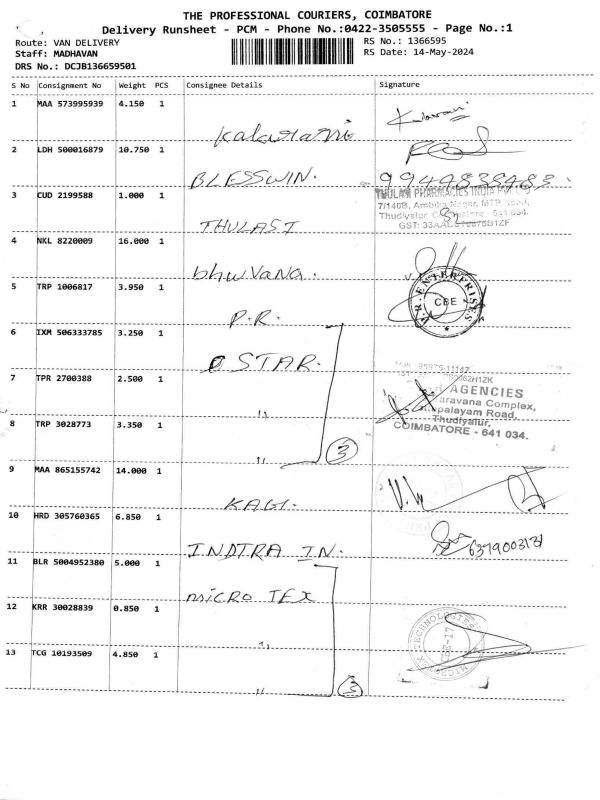 THE PROFESSIONAL COURIERS, COIMBATORE
Delivery Runsheet - PCM - Phone No.:0422-3505555 - Page No.:1
Route: VAN DELIVERY
RS No.: 1366595
Staff: MADHAVAN
RS Date: 14-May-2024
DRS No.: DCJB136659501
S No Consignment No Weight PCS Consignee Details Signature
1 MAA 573995939 4.150 1
Kalarani
2 LDH 500016879 10.750 1
BLESSWIN.
3 CUD 2199588 1.000 1
THULASI
THULASI PHARMACIES INDIA PVT LTD
7/140B, Ambika Nagar, MTP Road,
Thudiyalur, Coimbatore - 641 034.
4 NKL 8220009 16.000 1
bhuvana.
5 TRP 1006817 3.950 1
P.R.
P.R. ENTERPRISES
CBE
6 IXM 506333785 3.250 1
STAR.
7 TPR 2700388 2.500 1
"
AGENCIES
Saravana Complex,
palayam Road,
Thudiyalur,
COIMBATORE - 641 034.
8 TRP 3028773 3.350 1
" 3
9 MAA 865155742 14.000 1
KAGI.
10 HRD 305760365 6.850 1
INDTRA IN.
11 BLR 5004952380 5.000 1
MICRO TEX
12 KRR 30028839 0.850 1
"
13 TCG 10193509 4.850 1
" 3